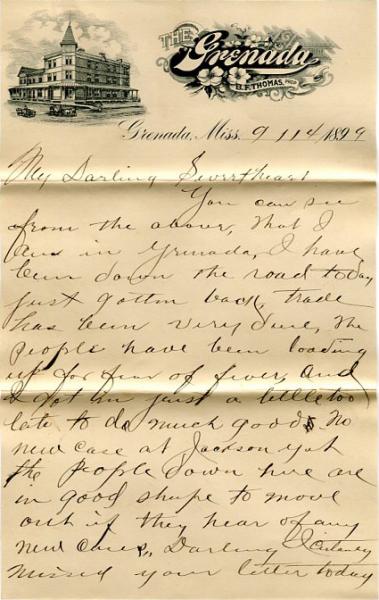 THE
Grenada
D. F. THOMAS, PROP
Grenada, Miss. 9 114 1899
My Darling Sweetheart
You can see
from the above, that I
am in Grenada, I have
been down the road today
just gotton back, trade
has been very dull, the
People have been loading
up for fear of fever, and
I got in just a little too
late to do much good. No
new case at Jackson yet
the People down here are
in good shape to move
out if they hear of any
new cases, Darling I
missed your letter today